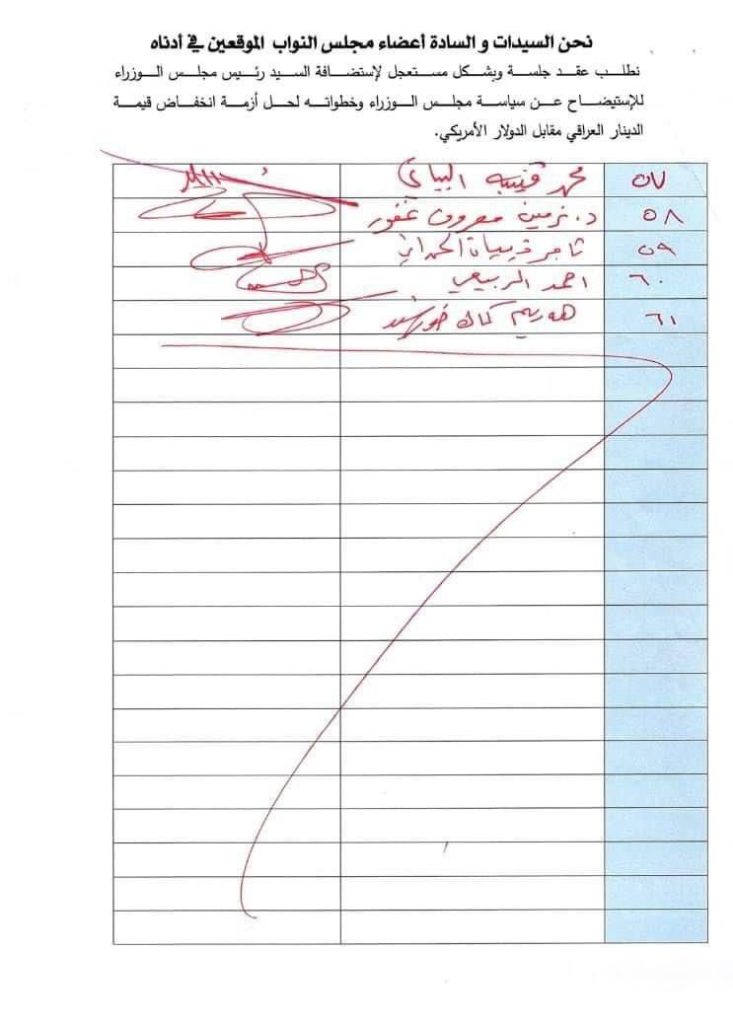 نحن السيدات و السادة أعضاء مجلس النواب الموقعين في أدناه
نطلب عقد جلسة وبشكل مستعجل لإستضافة السيد رئيس مجلس الوزراء
للإستيضاح عن سياسة مجلس الوزراء وخطواته لحل أزمة انخفاض قيمة
الدينار العراقي مقابل الدولار الأمريكي.
٥٧ محمد قتيبه البياتي
٥٨ د. نرمين معروف غفور
٥٩ ثامر ذيبان الحمداني
٦٠ احمد الربيعي
٦١ هه ريم كمال خورشيد